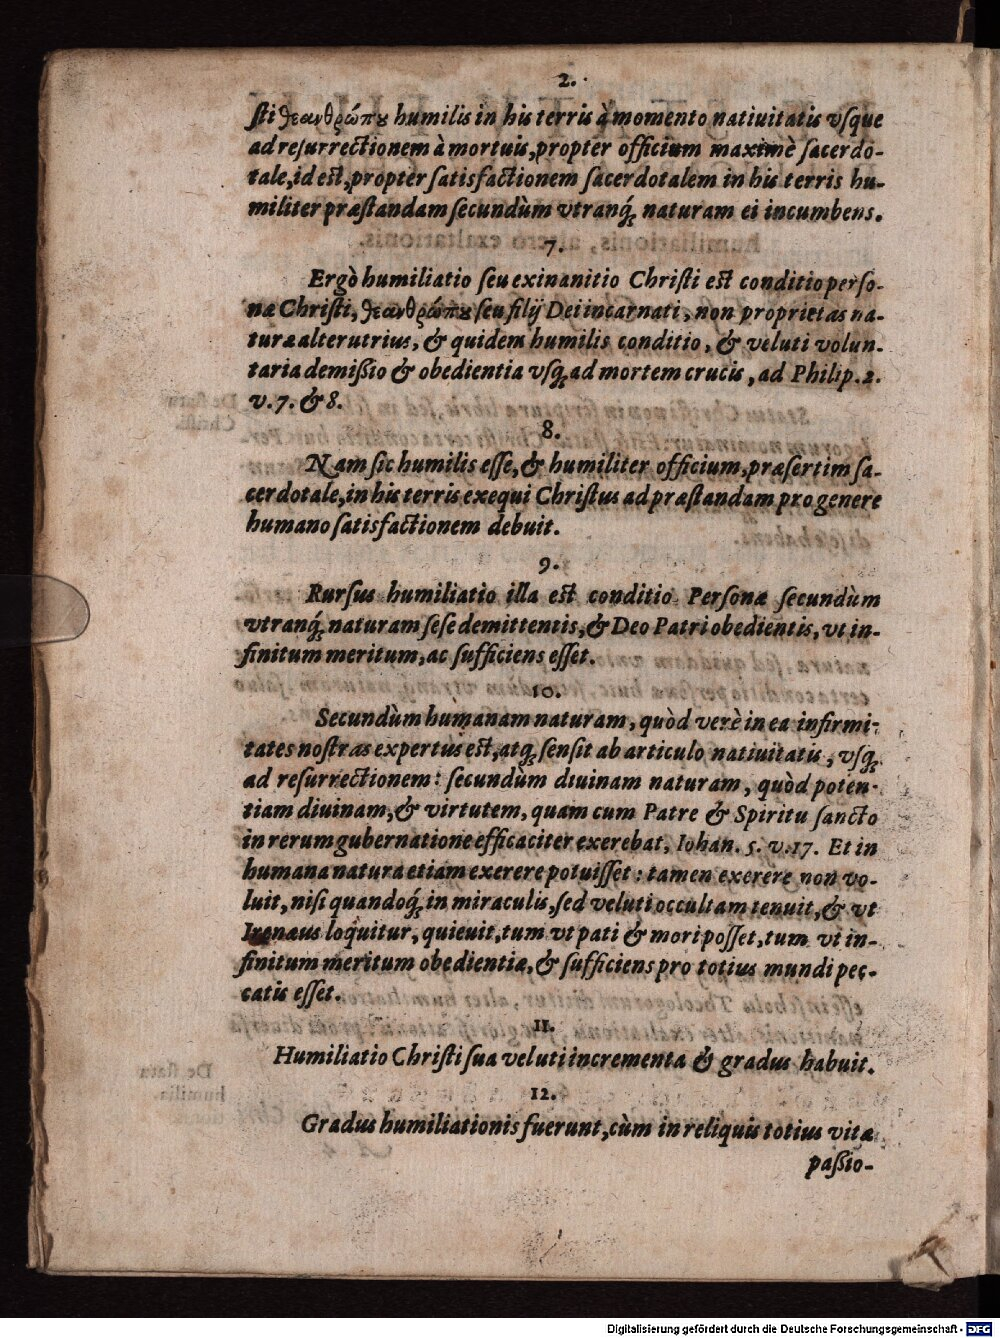 2.
sti θεανθρώπȣ humilis in his terris à momento natiuitatis vsque
ad resurrectionem à mortuis, propter officium maximè sacerdo-
tale, id est, propter satisfactionem sacerdotalem in his terris hu-
militer præstandam secundùm vtranq́ꝫ naturam ei incumbens.
7.
Ergò humiliatio seu exinanitio Christi est conditio perso-
næ Christi, θεανθρώπȣ seu filij Dei incarnati, non proprietas na-
turæ alterutrius, & quidem humilis conditio, & veluti volun-
taria demißio & obedientia vsqꝫ ad mortem crucis, ad Philip. 2.
v. 7. & 8.
8.
Nam sic humilis esse, & humiliter officium, præsertim sa-
cerdotale, in his terris exequi Christus ad præstandam pro genere
humano satisfactionem debuit.
9.
Rursus humiliatio illa est conditio Personæ secundùm
vtranq́ꝫ naturam sese demittentis, & Deo Patri obedientis, vt in-
finitum meritum, ac sufficiens esset.
10.
Secundùm humanam naturam, quòd verè in ea infirmi-
tates nostras expertus est, atqꝫ sensit ab articulo natiuitatis, vsqꝫ
ad resurrectionem: secundùm diuinam naturam, quòd poten-
tiam diuinam, & virtutem, quam cum Patre & Spiritu sancto
in rerum gubernatione efficaciter exerebat, Iohan. 5. v. 17. Et in
humana natura etiam exerere potuisset: tamen exerere non vo-
luit, nisi quandoqꝫ in miraculis, sed veluti occultam tenuit, & vt
Irenæus loquitur, quieuit, tum vt pati & mori posset, tum vt in-
finitum meritum obedientiæ, & sufficiens pro totius mundi pec-
catis esset.
11.
Humiliatio Christi sua veluti incrementa & gradus habuit.
12.
Gradus humiliationis fuerunt, cùm in reliquis totius vitæ
paßio-
Digitalisierung gefördert durch die Deutsche Forschungsgemeinschaft - DFG